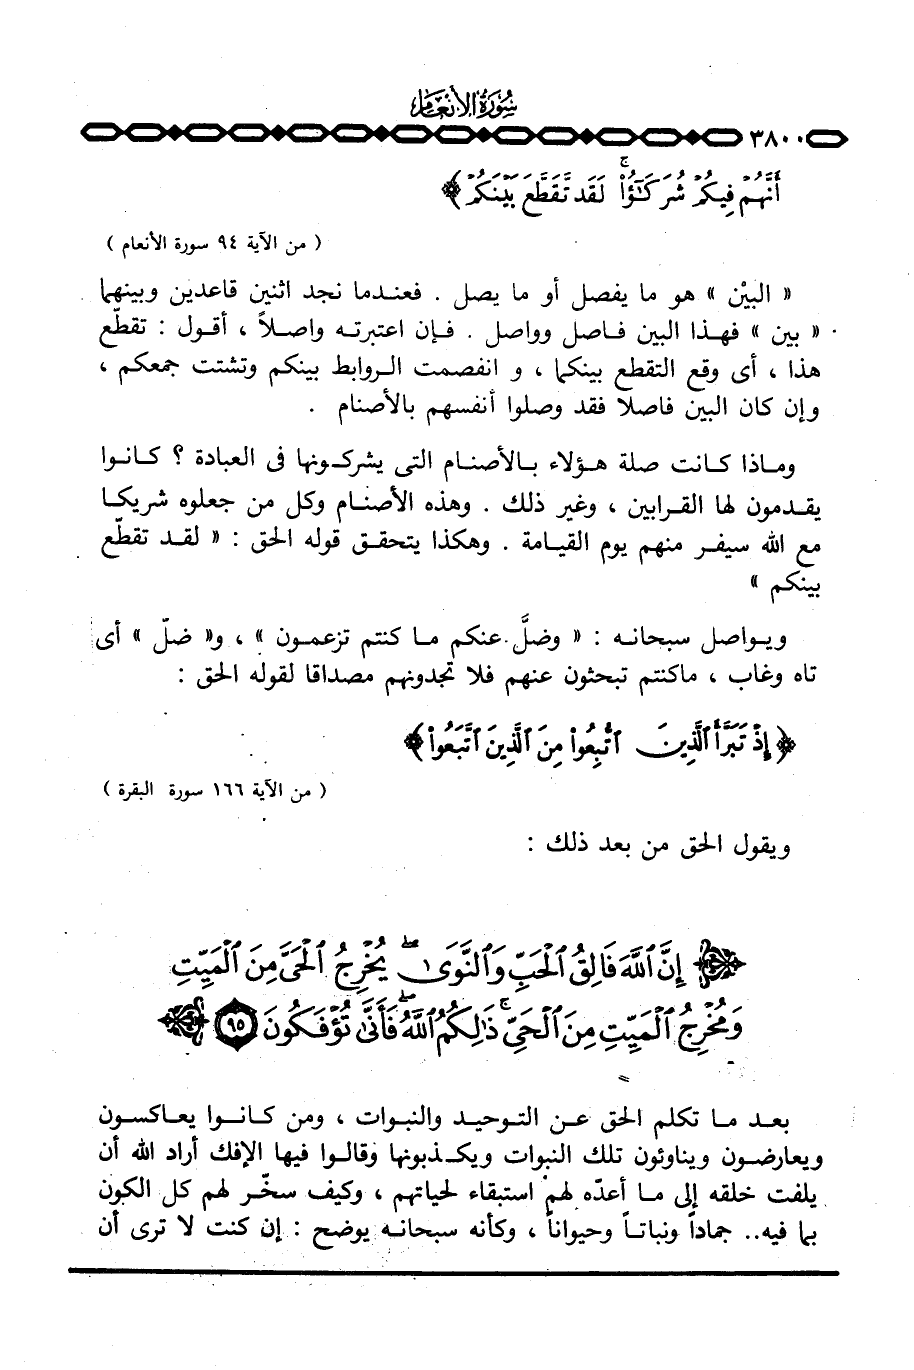 سورة الأنعام
٣٨٠٠
أَنَّهُمْ فِيكُمْ شُرَكَٰٓؤُا۟ ۚ لَقَد تَّقَطَّعَ بَيْنَكُمْ ﴾
( من الآية ٩٤ سورة الأنعام )
« البيْن » هو ما يفصل أو ما يصل . فعندما نجد اثنين قاعدين وبينهما
« بين » فهذا البين فاصل وواصل . فإن اعتبرته واصلاً ، أقول : تقطّع
هذا ، أى وقع التقطع بينكما ، و انفصمت الروابط بينكم وتشتت جمعكم ،
وإن كان البين فاصلا فقد وصلوا أنفسهم بالأصنام .
وماذا كانت صلة هؤلاء بالأصنام التى يشركونها فى العبادة ؟ كانوا
يقدمون لها القرابين ، وغير ذلك . وهذه الأصنام وكل من جعلوه شريكا
مع الله سيفر منهم يوم القيامة . وهكذا يتحقق قوله الحق : « لقد تقطّع
بينكم »
ويواصل سبحانه : « وضلَّ عنكم ما كنتم تزعمون » ، و« ضلّ » أى
تاه وغاب ، ماكنتم تبحثون عنهم فلا تجدونهم مصداقا لقوله الحق :
﴿ إِذْ تَبَرَّأَ ٱلَّذِينَ ٱتُّبِعُوا۟ مِنَ ٱلَّذِينَ ٱتَّبَعُوا۟ ﴾
( من الآية ١٦٦ سورة البقرة )
ويقول الحق من بعد ذلك :
إِنَّ ٱللَّهَ فَالِقُ ٱلْحَبِّ وَٱلنَّوَىٰ ۖ يُخْرِجُ ٱلْحَىَّ مِنَ ٱلْمَيِّتِ
وَمُخْرِجُ ٱلْمَيِّتِ مِنَ ٱلْحَىِّ ۚ ذَٰلِكُمُ ٱللَّهُ ۖ فَأَنَّىٰ تُؤْفَكُونَ ٩٥
بعد ما تكلم الحق عن التوحيد والنبوات ، ومن كانوا يعاكسون
ويعارضون ويناوئون تلك النبوات ويكذبونها وقالوا فيها الإفك أراد الله أن
يلفت خلقه إلى ما أعدّه لهم استبقاء لحياتهم ، وكيف سخّر لهم كل الكون
بما فيه.. جماداً ونباتاً وحيواناً ، وكأنه سبحانه يوضح : إن كنت لا ترى أن